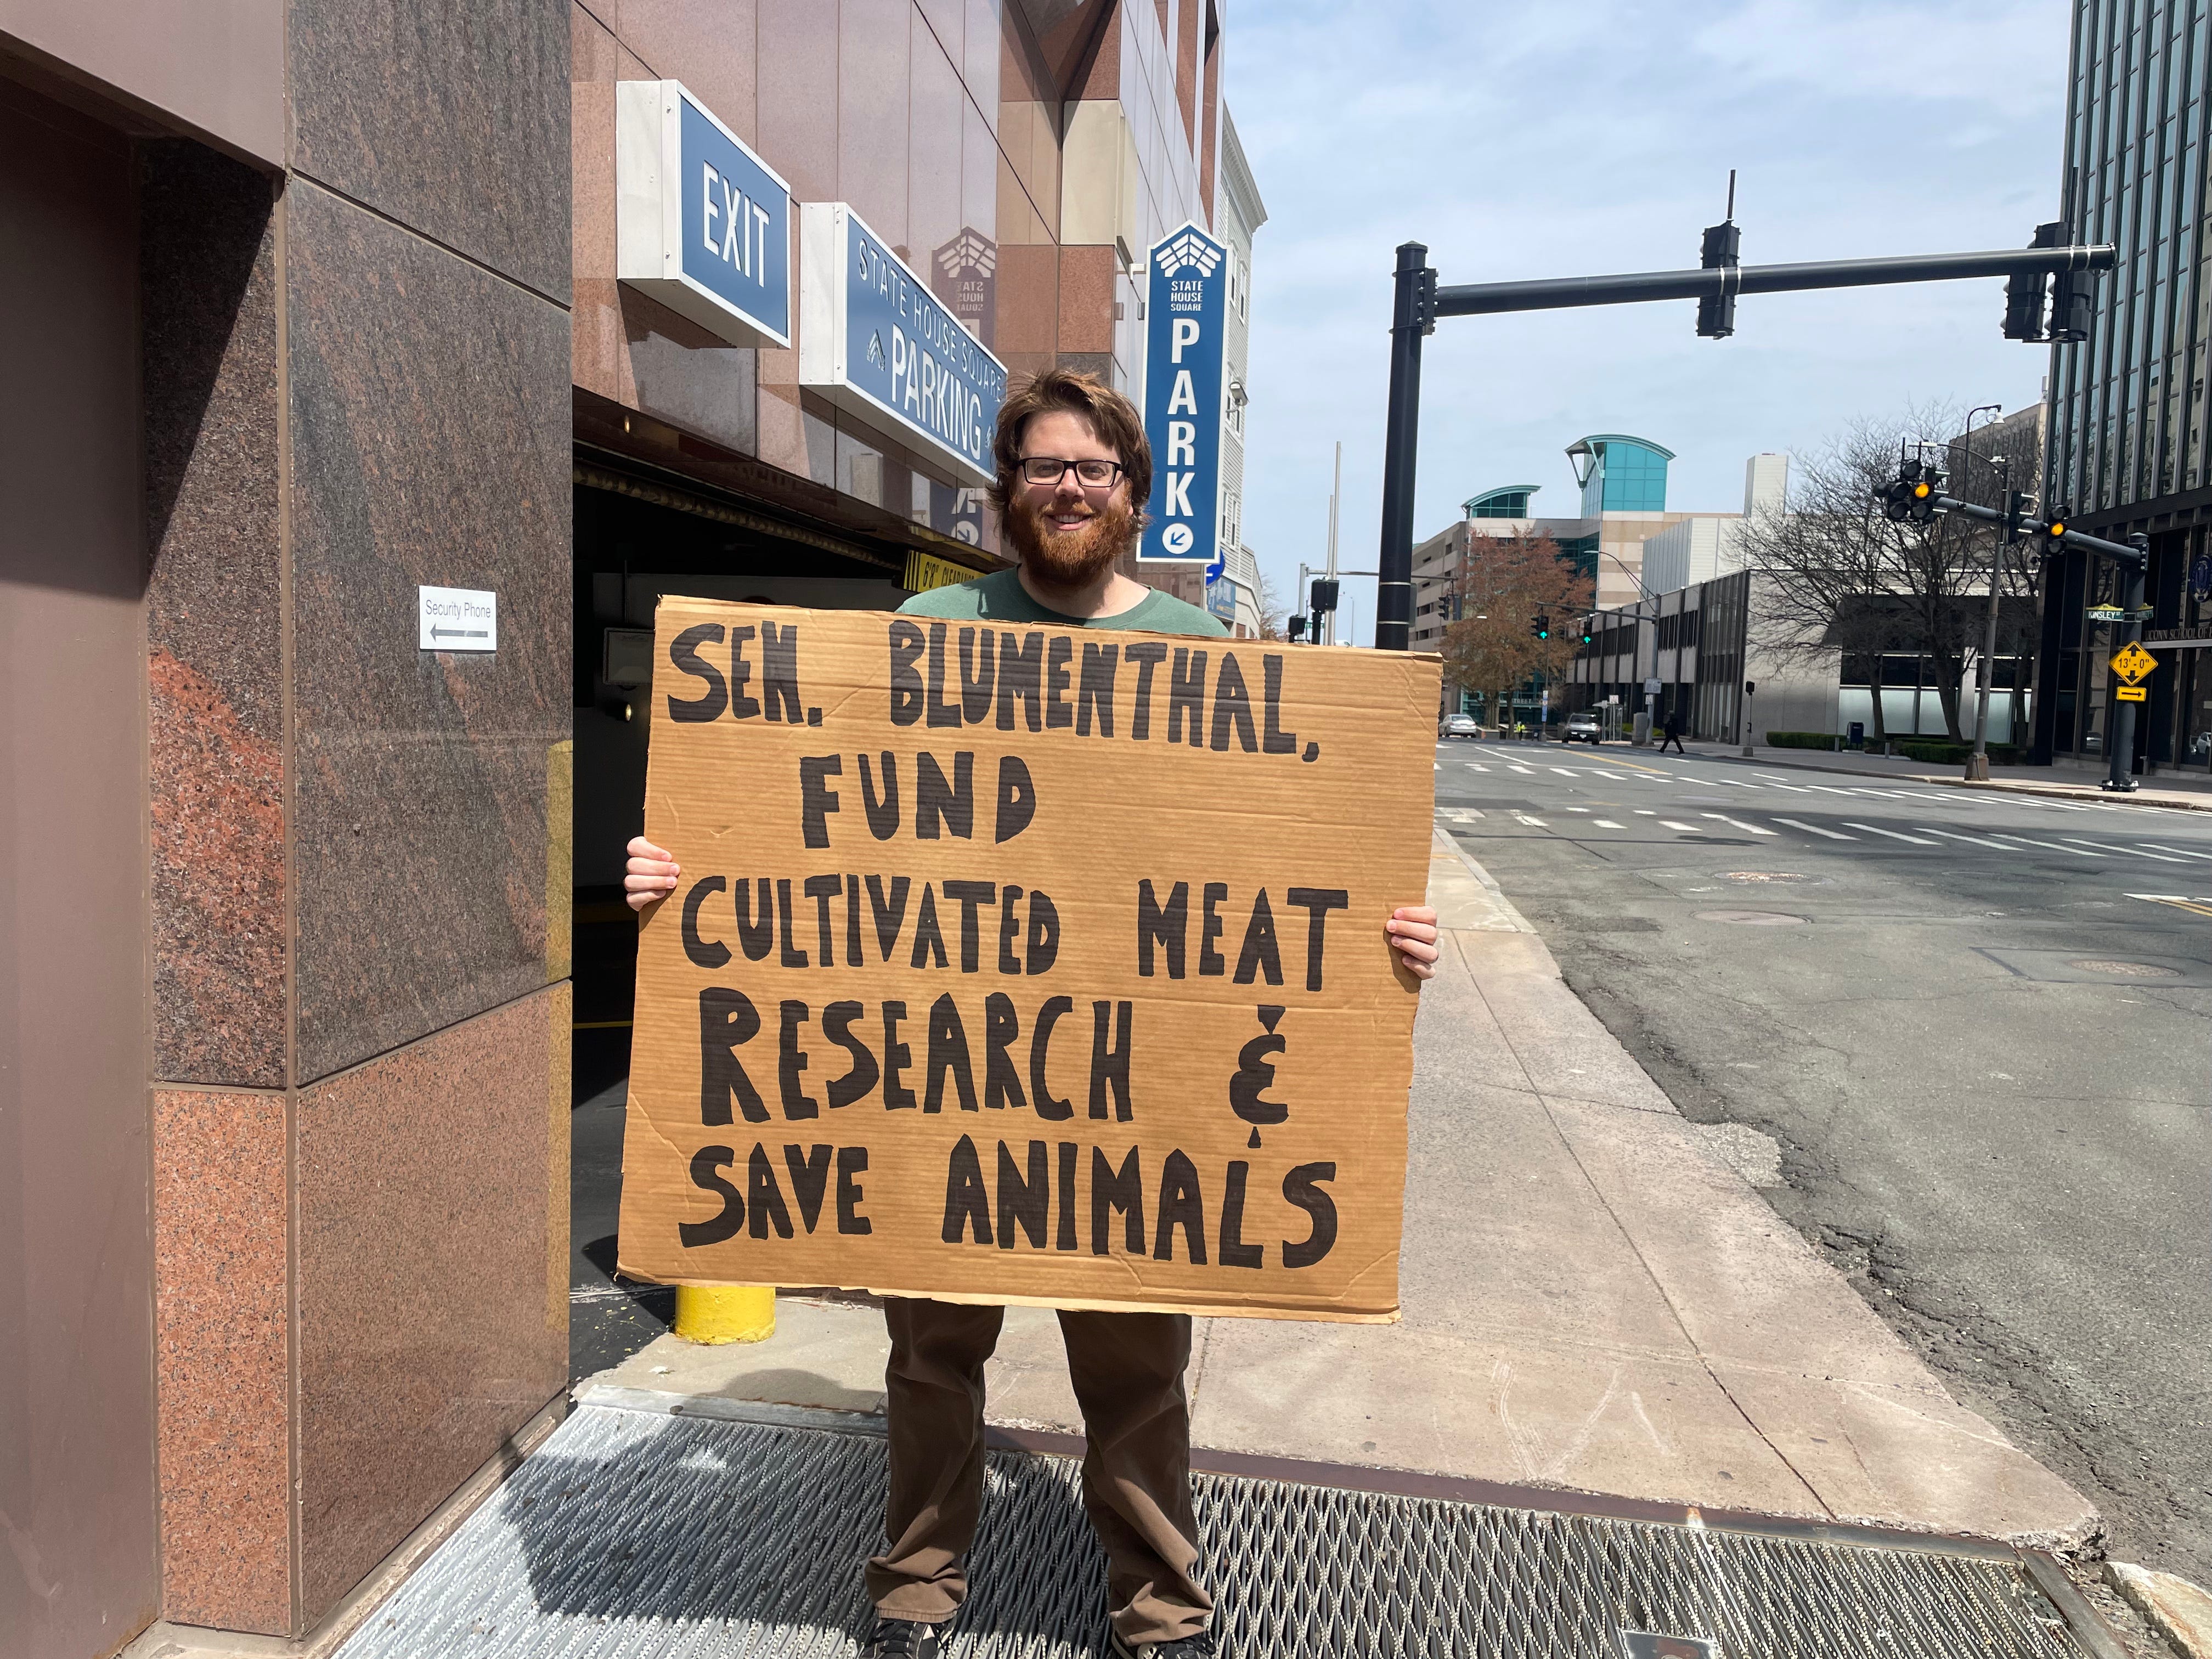 EXIT
STATE HOUSE SQUARE
PARKING
STATE
HOUSE
SQUARE
PARK
Security Phone
SEN. BLUMENTHAL,
FUND
CULTIVATED MEAT
RESEARCH &
SAVE ANIMALS
KINSLEY
13'-0"